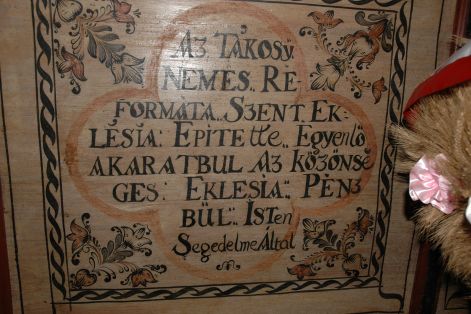 AZ TAKOSY
NEMES. RE-
FORMATA.. SZENT. EK-
LÉSIA: EPITEtte.. EgyenlŐ
AKARATBUL AZ KÖZÖNSÉ
GES: EKLESIA.. PÉNZ
BÜL.. ISten
Segedelme Által